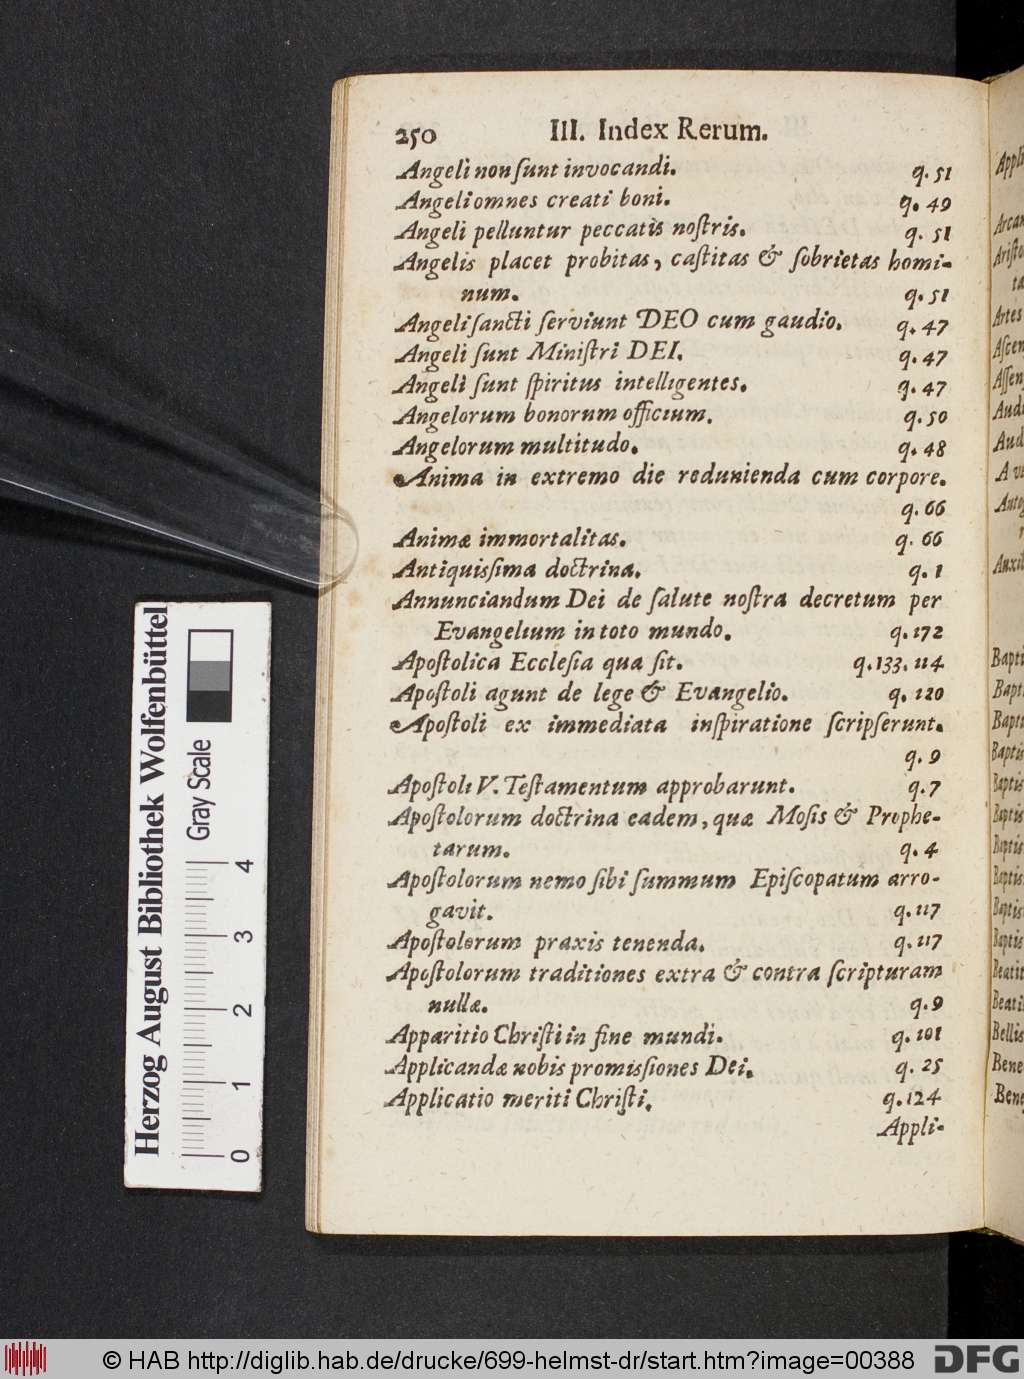 250 III. Index Rerum.
Angeli non ſunt invocandi. q. 51
Angeli omnes creati boni. q. 49
Angeli pelluntur peccatis noſtris. q. 51
Angelis placet probitas, caſtitas & ſobrietas homi-
num. q. 51
Angeli ſancti ſerviunt DEO cum gaudio. q. 47
Angeli ſunt Miniſtri DEI. q. 47
Angeli ſunt ſpiritus intelligentes. q. 47
Angelorum bonorum officium. q. 50
Angelorum multitudo. q. 48
Anima in extremo die redunienda cum corpore.
q. 66
Animæ immortalitas. q. 66
Antiquisſima doctrina. q. 1
Annunciandum Dei de ſalute noſtra decretum per
Evangelium in toto mundo. q. 172
Apoſtolica Eccleſia qua ſit. q. 133. 114
Apoſtoli agunt de lege & Evangelio. q. 120
Apoſtoli ex immediata inſpiratione ſcripſerunt.
q. 9
Apoſtoli V. Teſtamentum approbarunt. q. 7
Apoſtolorum doctrina eadem, quæ Moſis & Prophe-
tarum. q. 4
Apoſtolorum nemo ſibi ſummum Epiſcopatum arro-
gavit. q. 117
Apoſtolorum praxis tenenda. q. 117
Apoſtolorum traditiones extra & contra ſcripturam
nullæ. q. 9
Apparitio Chriſti in fine mundi. q. 101
Applicandæ nobis promisſiones Dei. q. 25
Applicatio meriti Chriſti. q. 124
Appli-
Herzog August Bibliothek Wolfenbüttel
Gray Scale
0 1 2 3 4
© HAB http://diglib.hab.de/drucke/699-helmst-dr/start.htm?image=00388
DFG